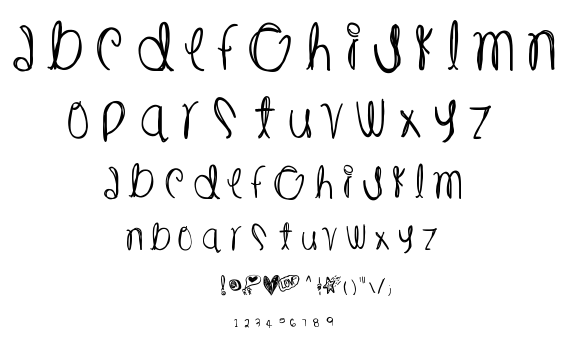 a b c d e f G h i J k l m n
o p q r s t u v w x y z
a b c d e f G h i J k l m
n b o q r s t u v w x y z
! LOVE ^ ! ( ) " \ / ;
1 2 3 4 5 6 7 8 9